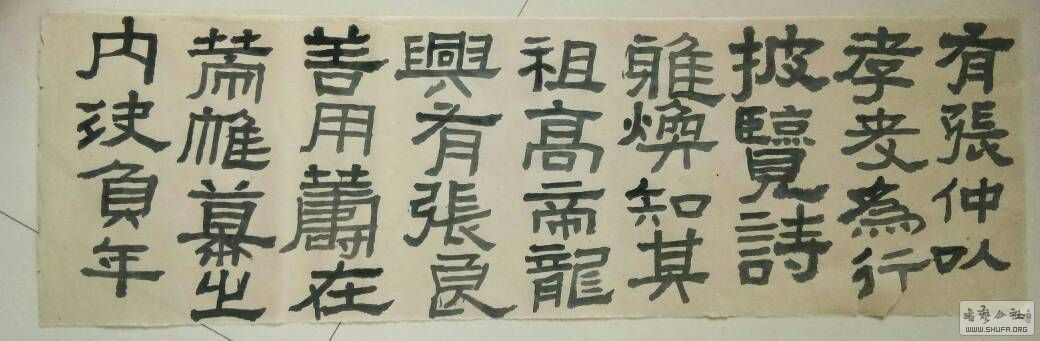 有張仲以
孝友為行
披覽詩
雅煥知其
祖高帝龍
興有張良
善用籌在
策帷幕之
内決負年
书艺公社
WWW.SHUFA.ORG